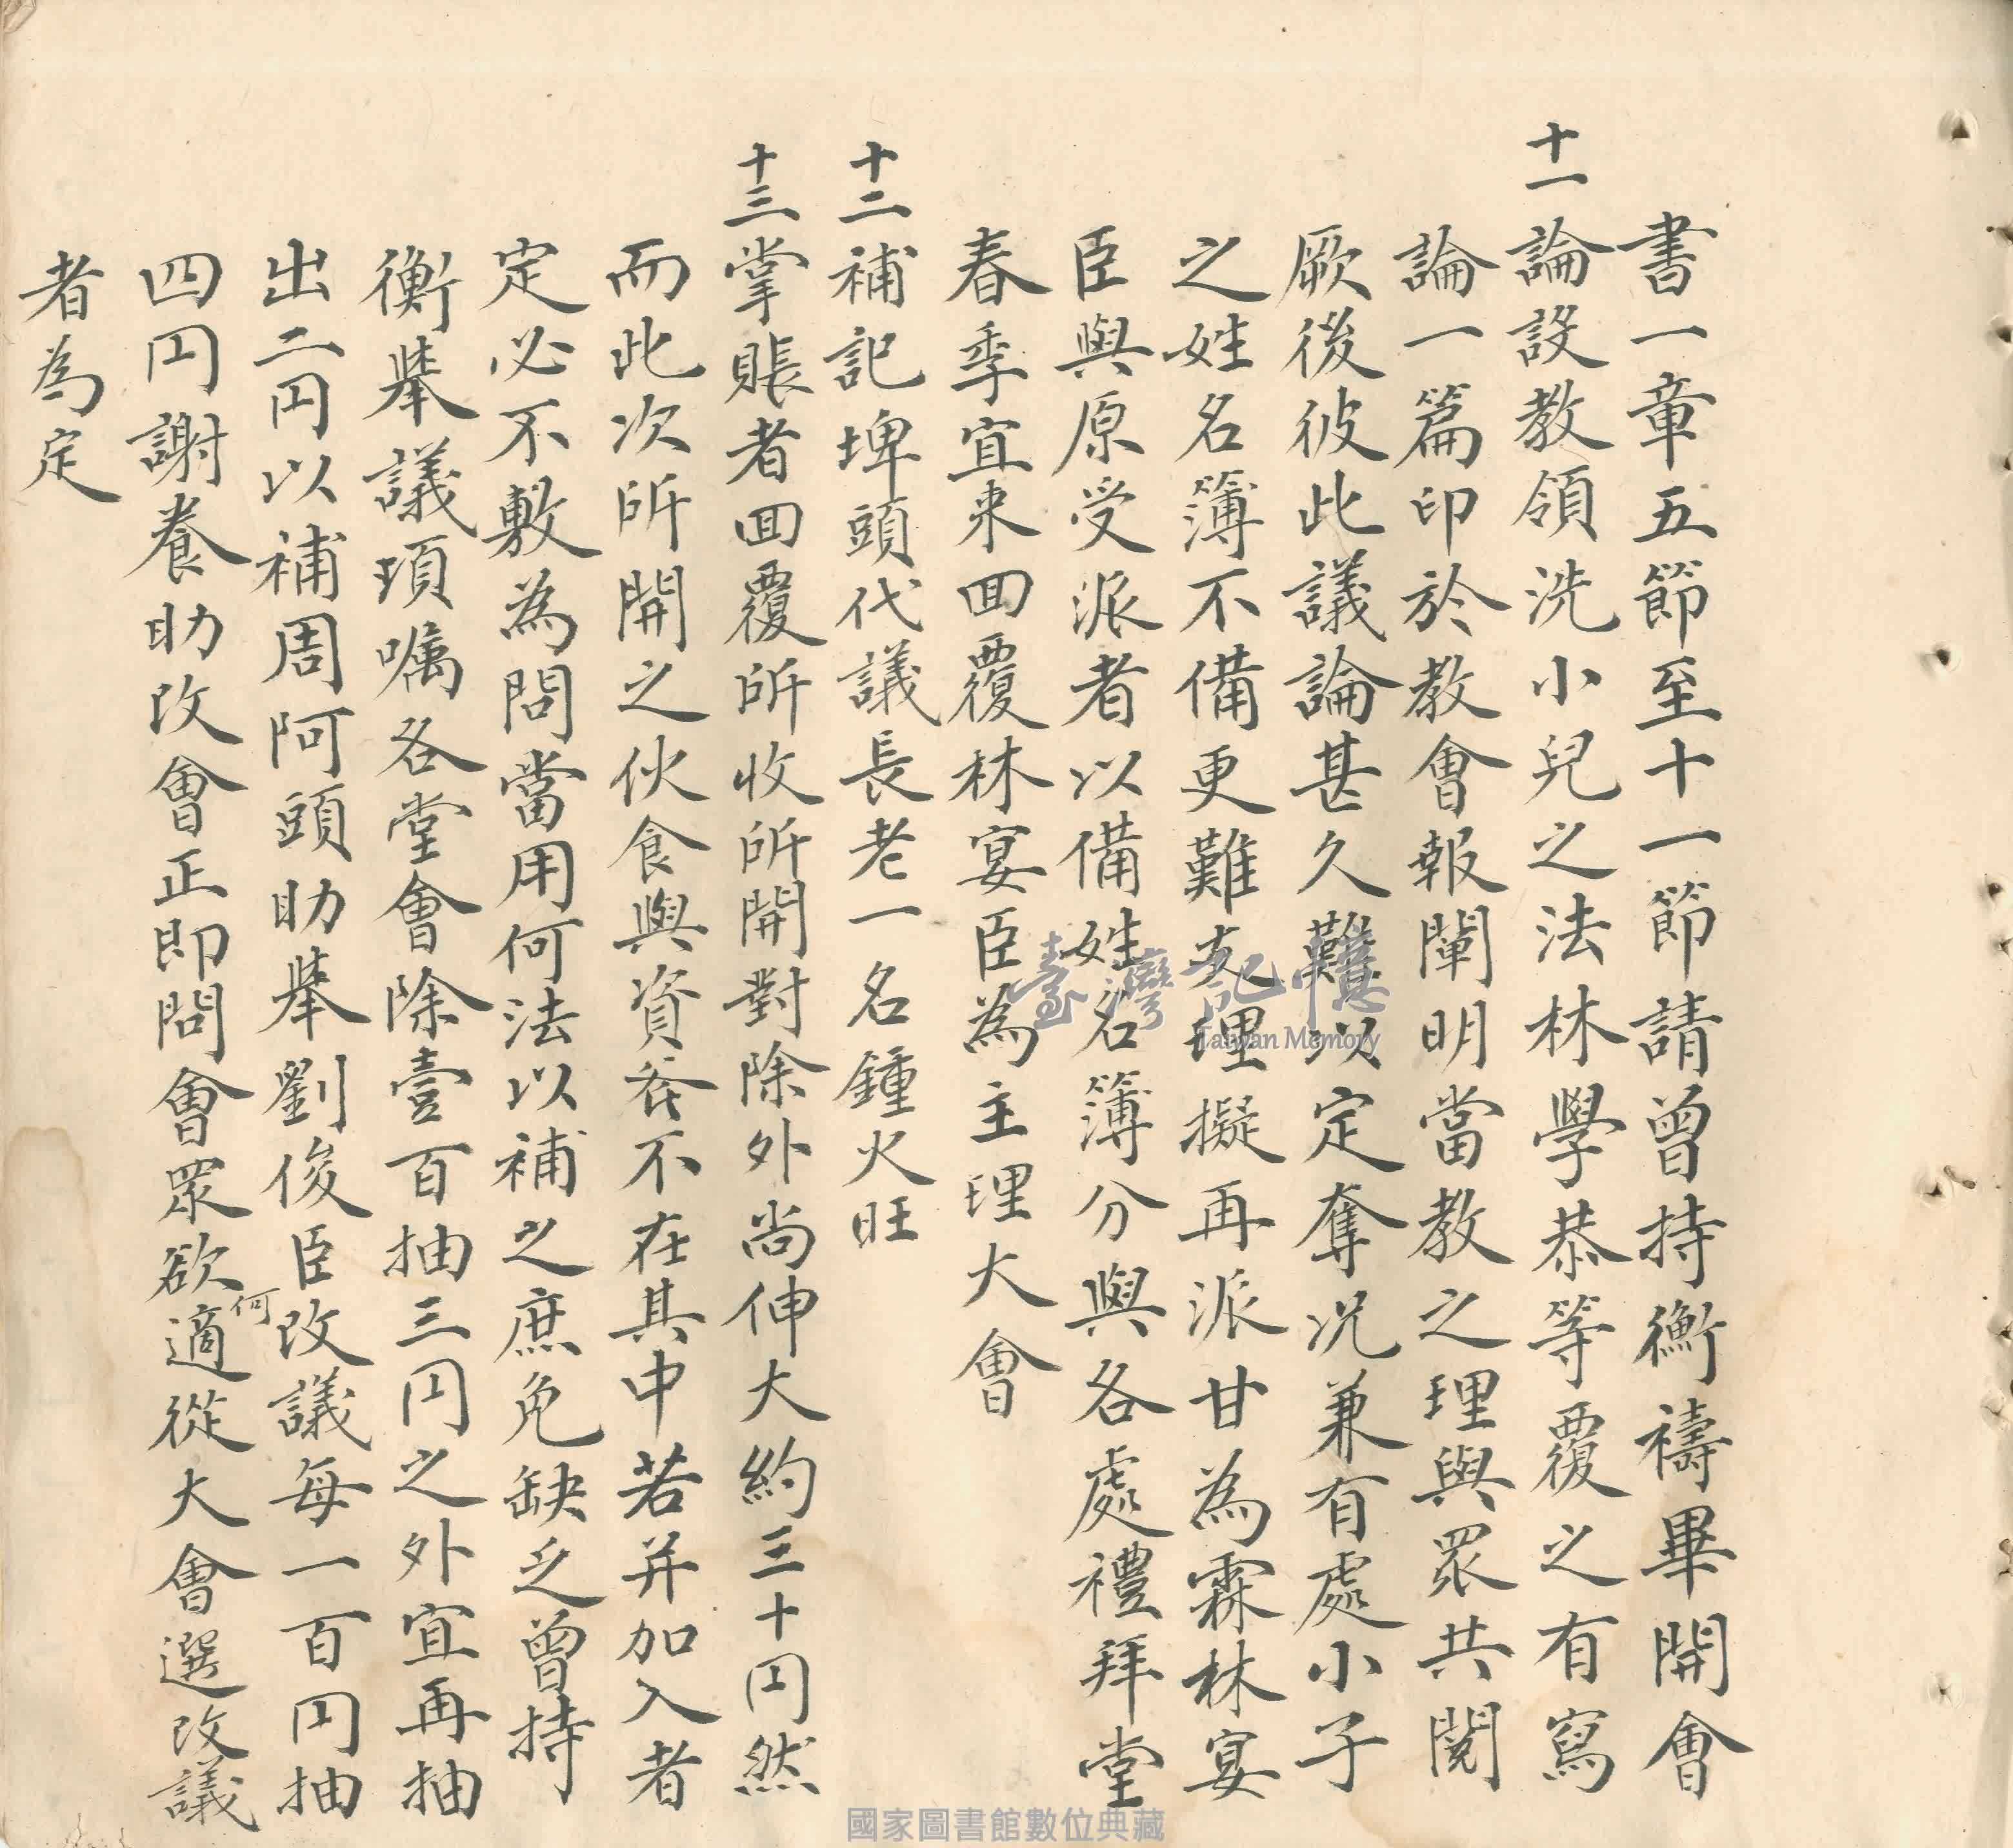 書一章五節至十一節請曾持衡禱畢開會
十一論設教領洗小兒之法林學恭等覆之有寫
論一篇印於教會報闡明當教之理與眾共閱
厥後彼此議論甚久難以定奪况兼有處小子
之姓名簿不備更難支理擬再派甘為霖林宴
臣與原受派者以備姓名簿分與各處禮拜堂
春季宜來囬覆林宴臣為主理大會
十二補記埤頭代議長老一名鍾火旺
十三掌賬者囬覆所收所開對除外尚伸大約三十円然
而此次所開之伙食與資吞不在其中若并加入者
定必不敷為問當用何法以補之庶免缺乏曾持
衡舉議項囑各堂會除壹百抽三円之外宜再抽
出二円以補周阿頭助舉劉俊臣改議每一百円抽
四円謝養助改會正即問會眾欲適何從大會選改議
者為定
臺灣記憶
Taiwan Memory
國家圖書館數位典藏